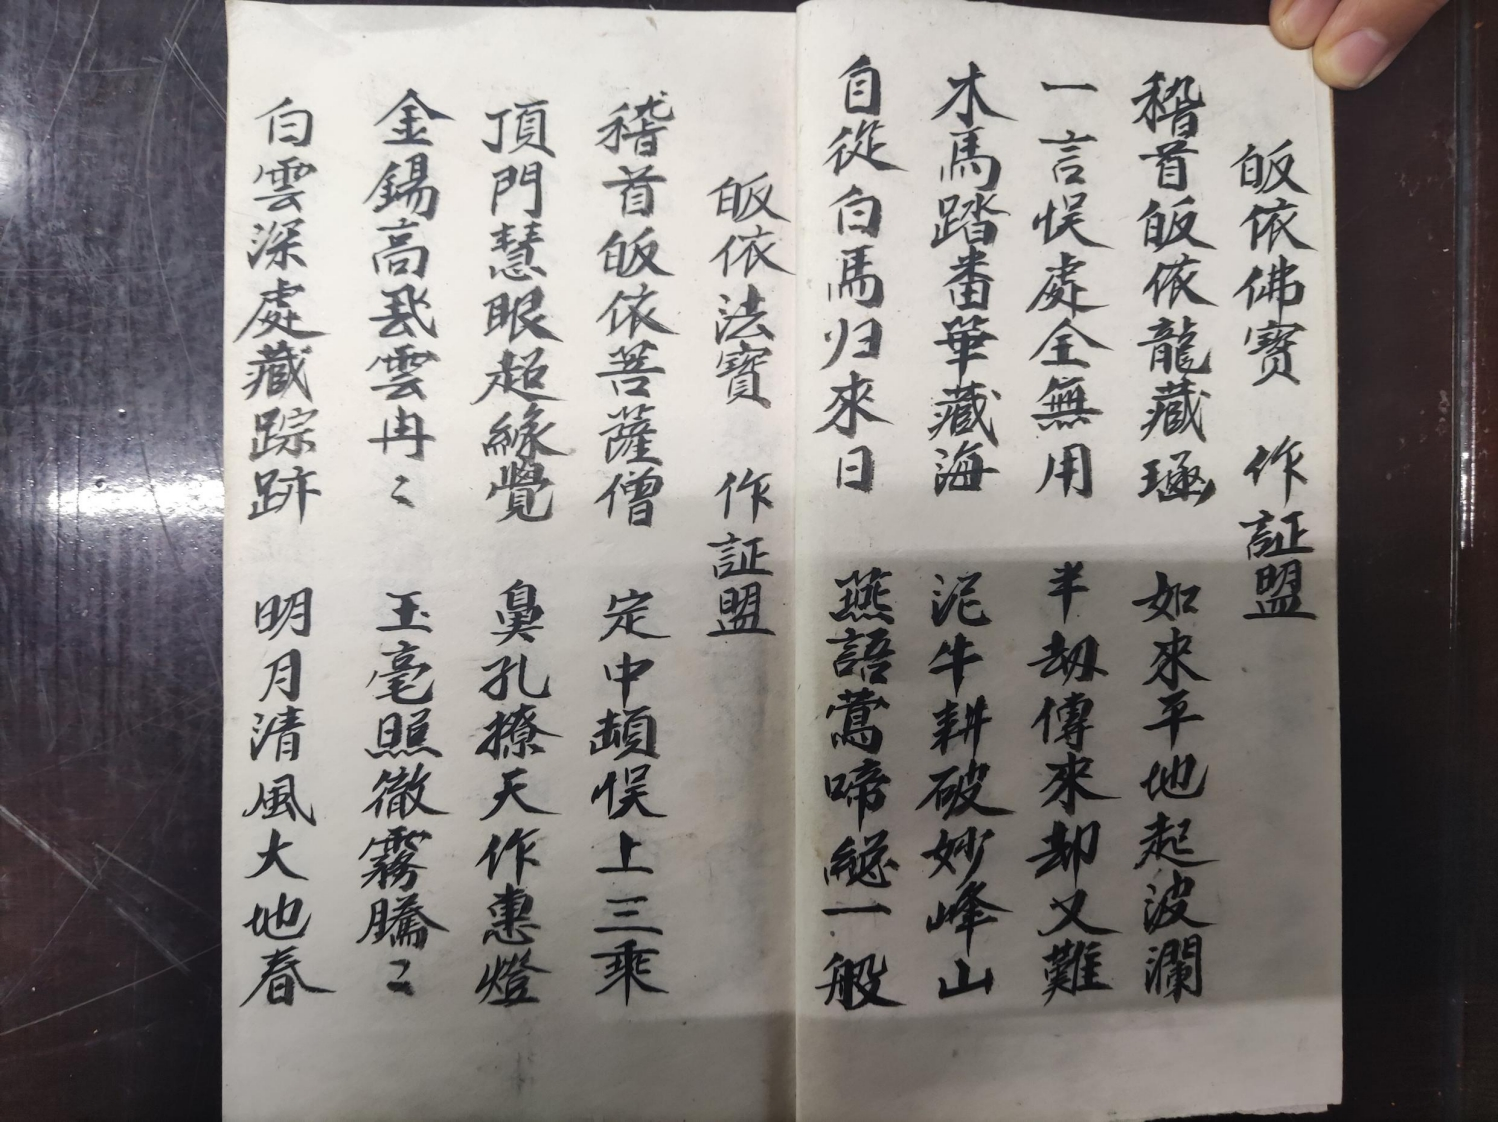 皈依佛寳　作証盟
稽首皈依龍藏函　如來平地起波瀾
一言悮處全無用　半刼傳來却又難
木馬踏番華藏海　泥牛耕破妙峰山
自從白馬归來日　燕語鶯啼總一般
皈依法寳　作証盟
稽首皈依菩薩僧　定中頓悮上三乘
頂門慧眼超緣覺　鼻孔撩天作惠燈
金錫高飛雲冉〻　玉毫照徹霧騰〻
白雲深處藏踪跡　明月清風大地春